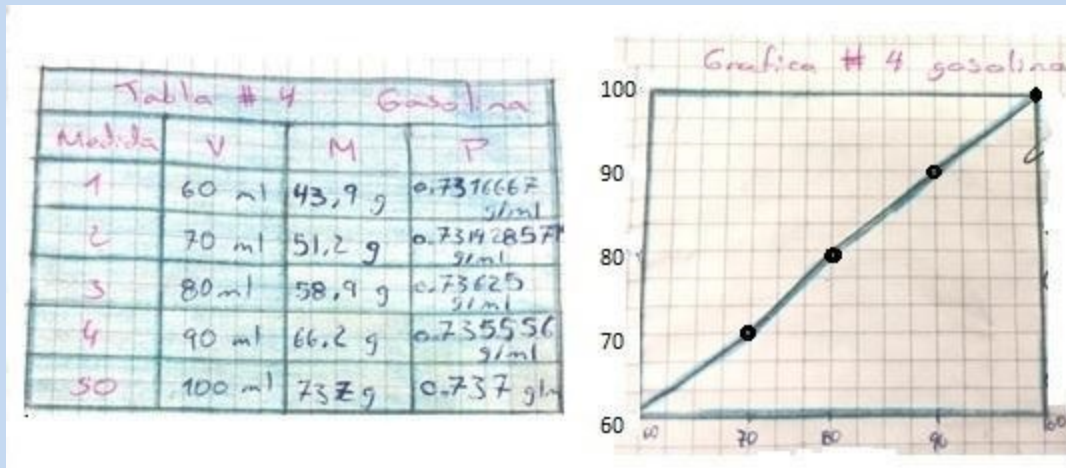 Tabla # 4 Gasolina
Medida V M P
1 60 ml 43,9 g 0.7316667 g/ml
2 70 ml 51.2 g 0.731428571 g/ml
3 80 ml 58,9 g 0.73625 g/ml
4 90 ml 66.2 g 0.735556 g/ml
50 100 ml 0.737 g/
Grafica # 4 gasolina
100
90
80
70
60
60 70 80 90